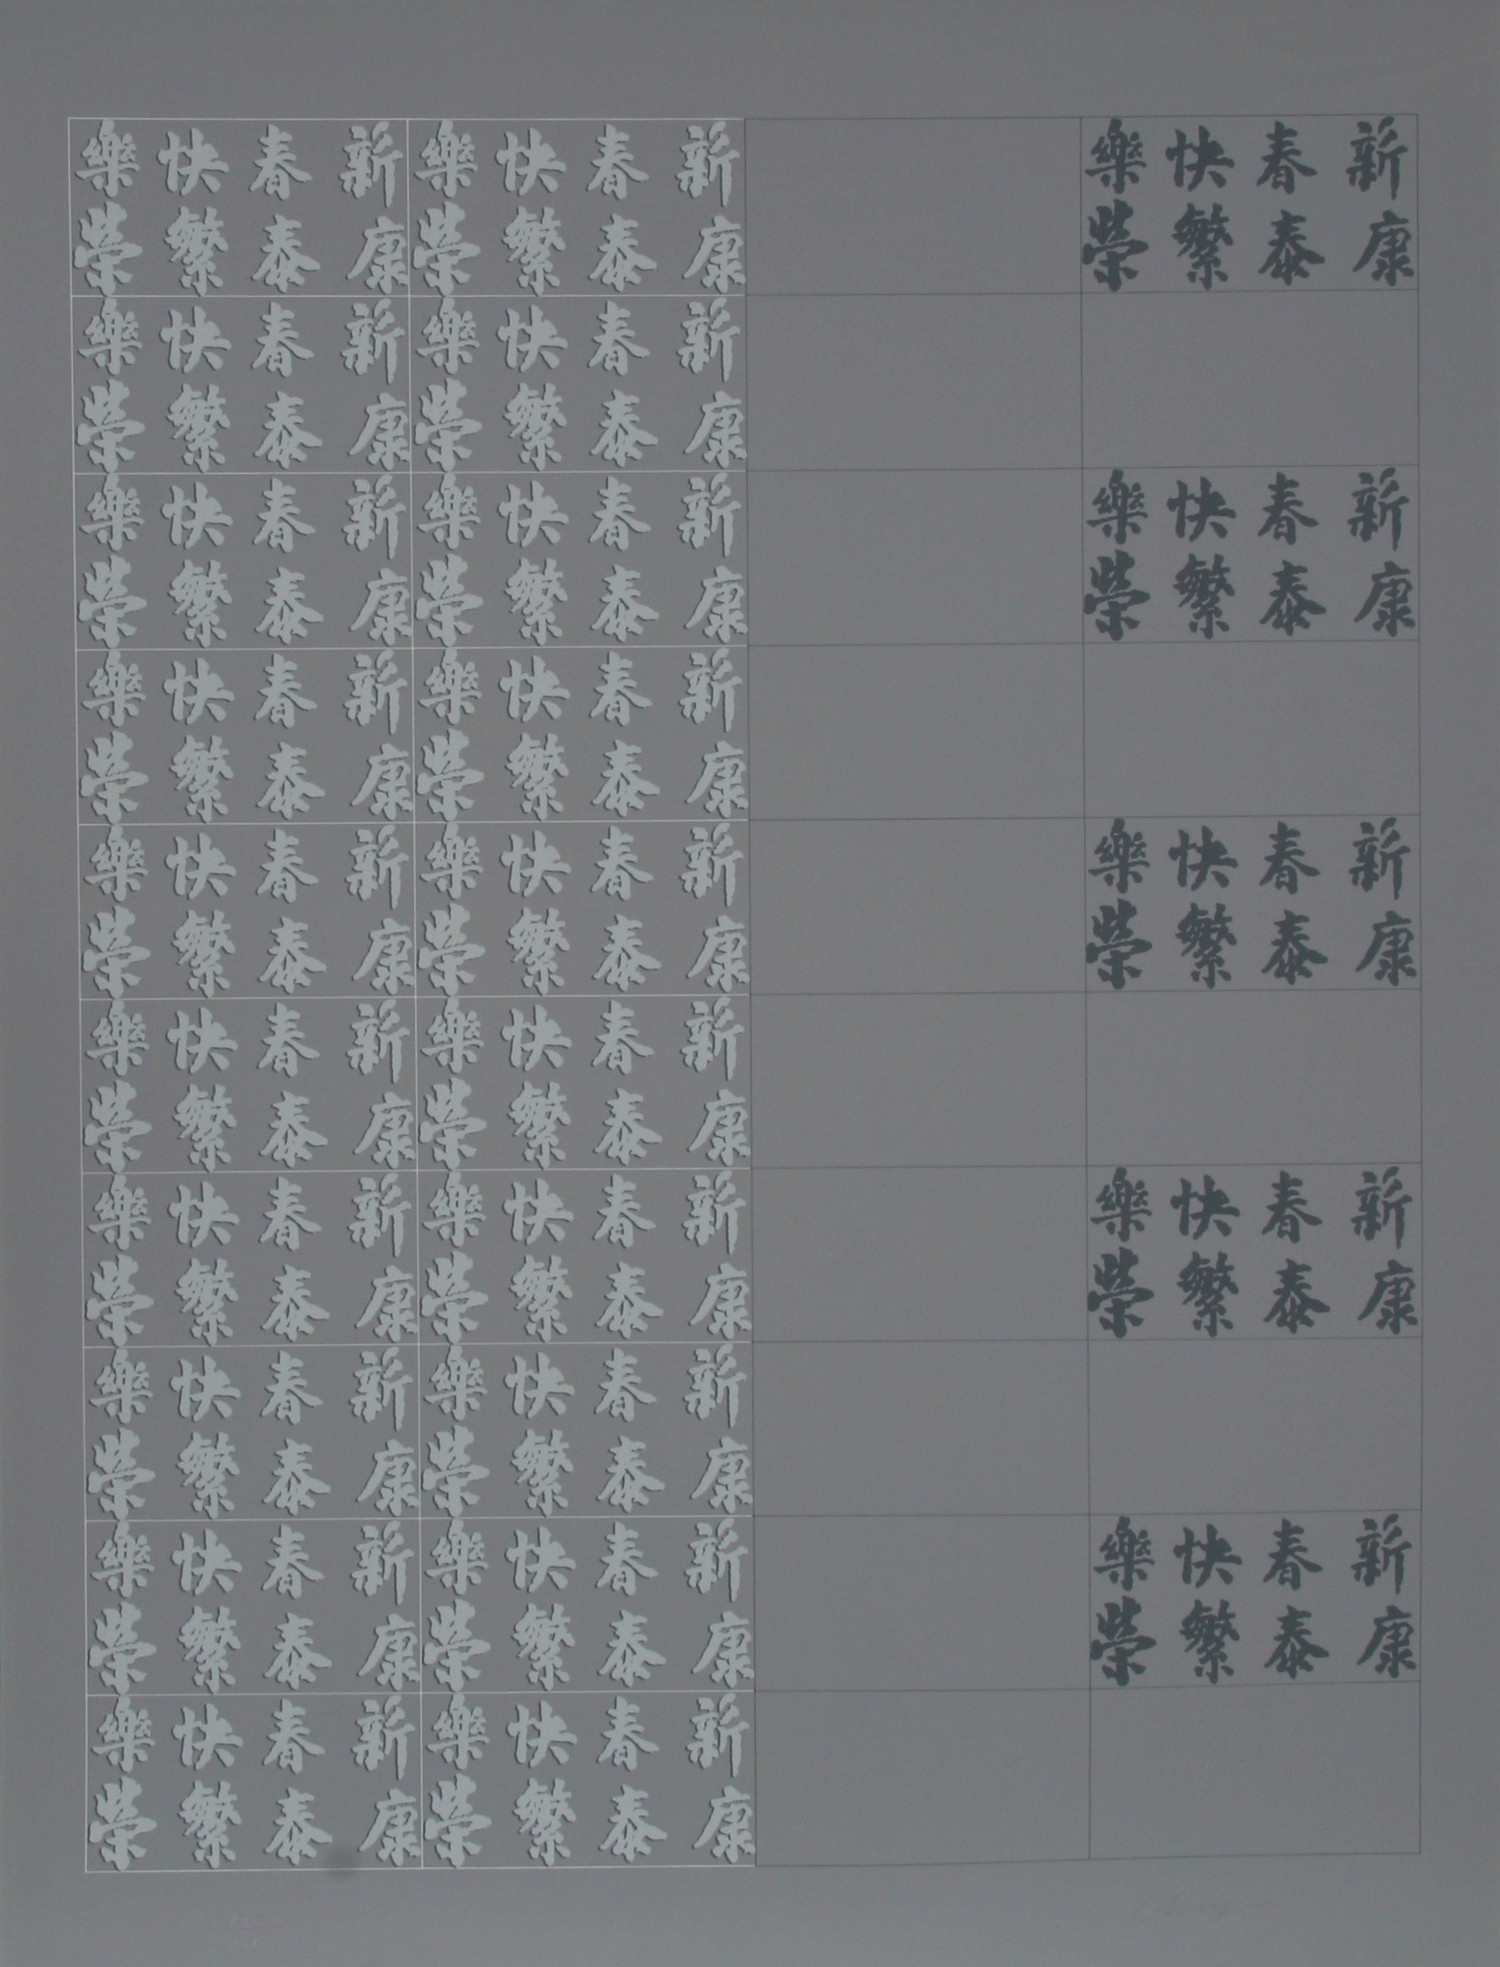 新春快樂
康泰繁榮
新春快樂
康泰繁榮
新春快樂
康泰繁榮
新春快樂
康泰繁榮
新春快樂
康泰繁榮
新春快樂
康泰繁榮
新春快樂
康泰繁榮
新春快樂
康泰繁榮
新春快樂
康泰繁榮
新春快樂
康泰繁榮
新春快樂
康泰繁榮
新春快樂
康泰繁榮
新春快樂
康泰繁榮
新春快樂
康泰繁榮
新春快樂
康泰繁榮
新春快樂
康泰繁榮
新春快樂
康泰繁榮
新春快樂
康泰繁榮
新春快樂
康泰繁榮
新春快樂
康泰繁榮
新春快樂
康泰繁榮
新春快樂
康泰繁榮
新春快樂
康泰繁榮
新春快樂
康泰繁榮
新春快樂
康泰繁榮